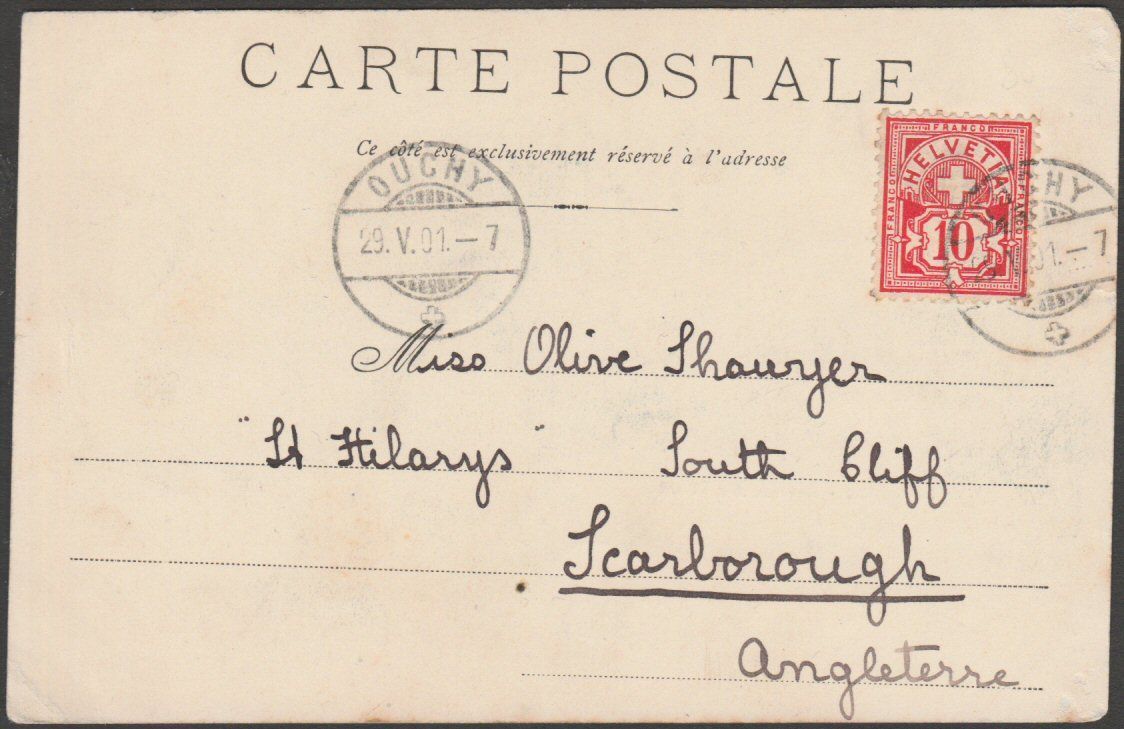 CARTE POSTALE
Ce côté est exclusivement réservé à l'adresse
OUCHY
29. V. 01. – 7
FRANCO
FRANCO
FRANCO
HELVETIA
10
CHY
01. – 7
Miss Olive Thawyer
"St Hilarys" South Cliff
Scarborough
Angleterre